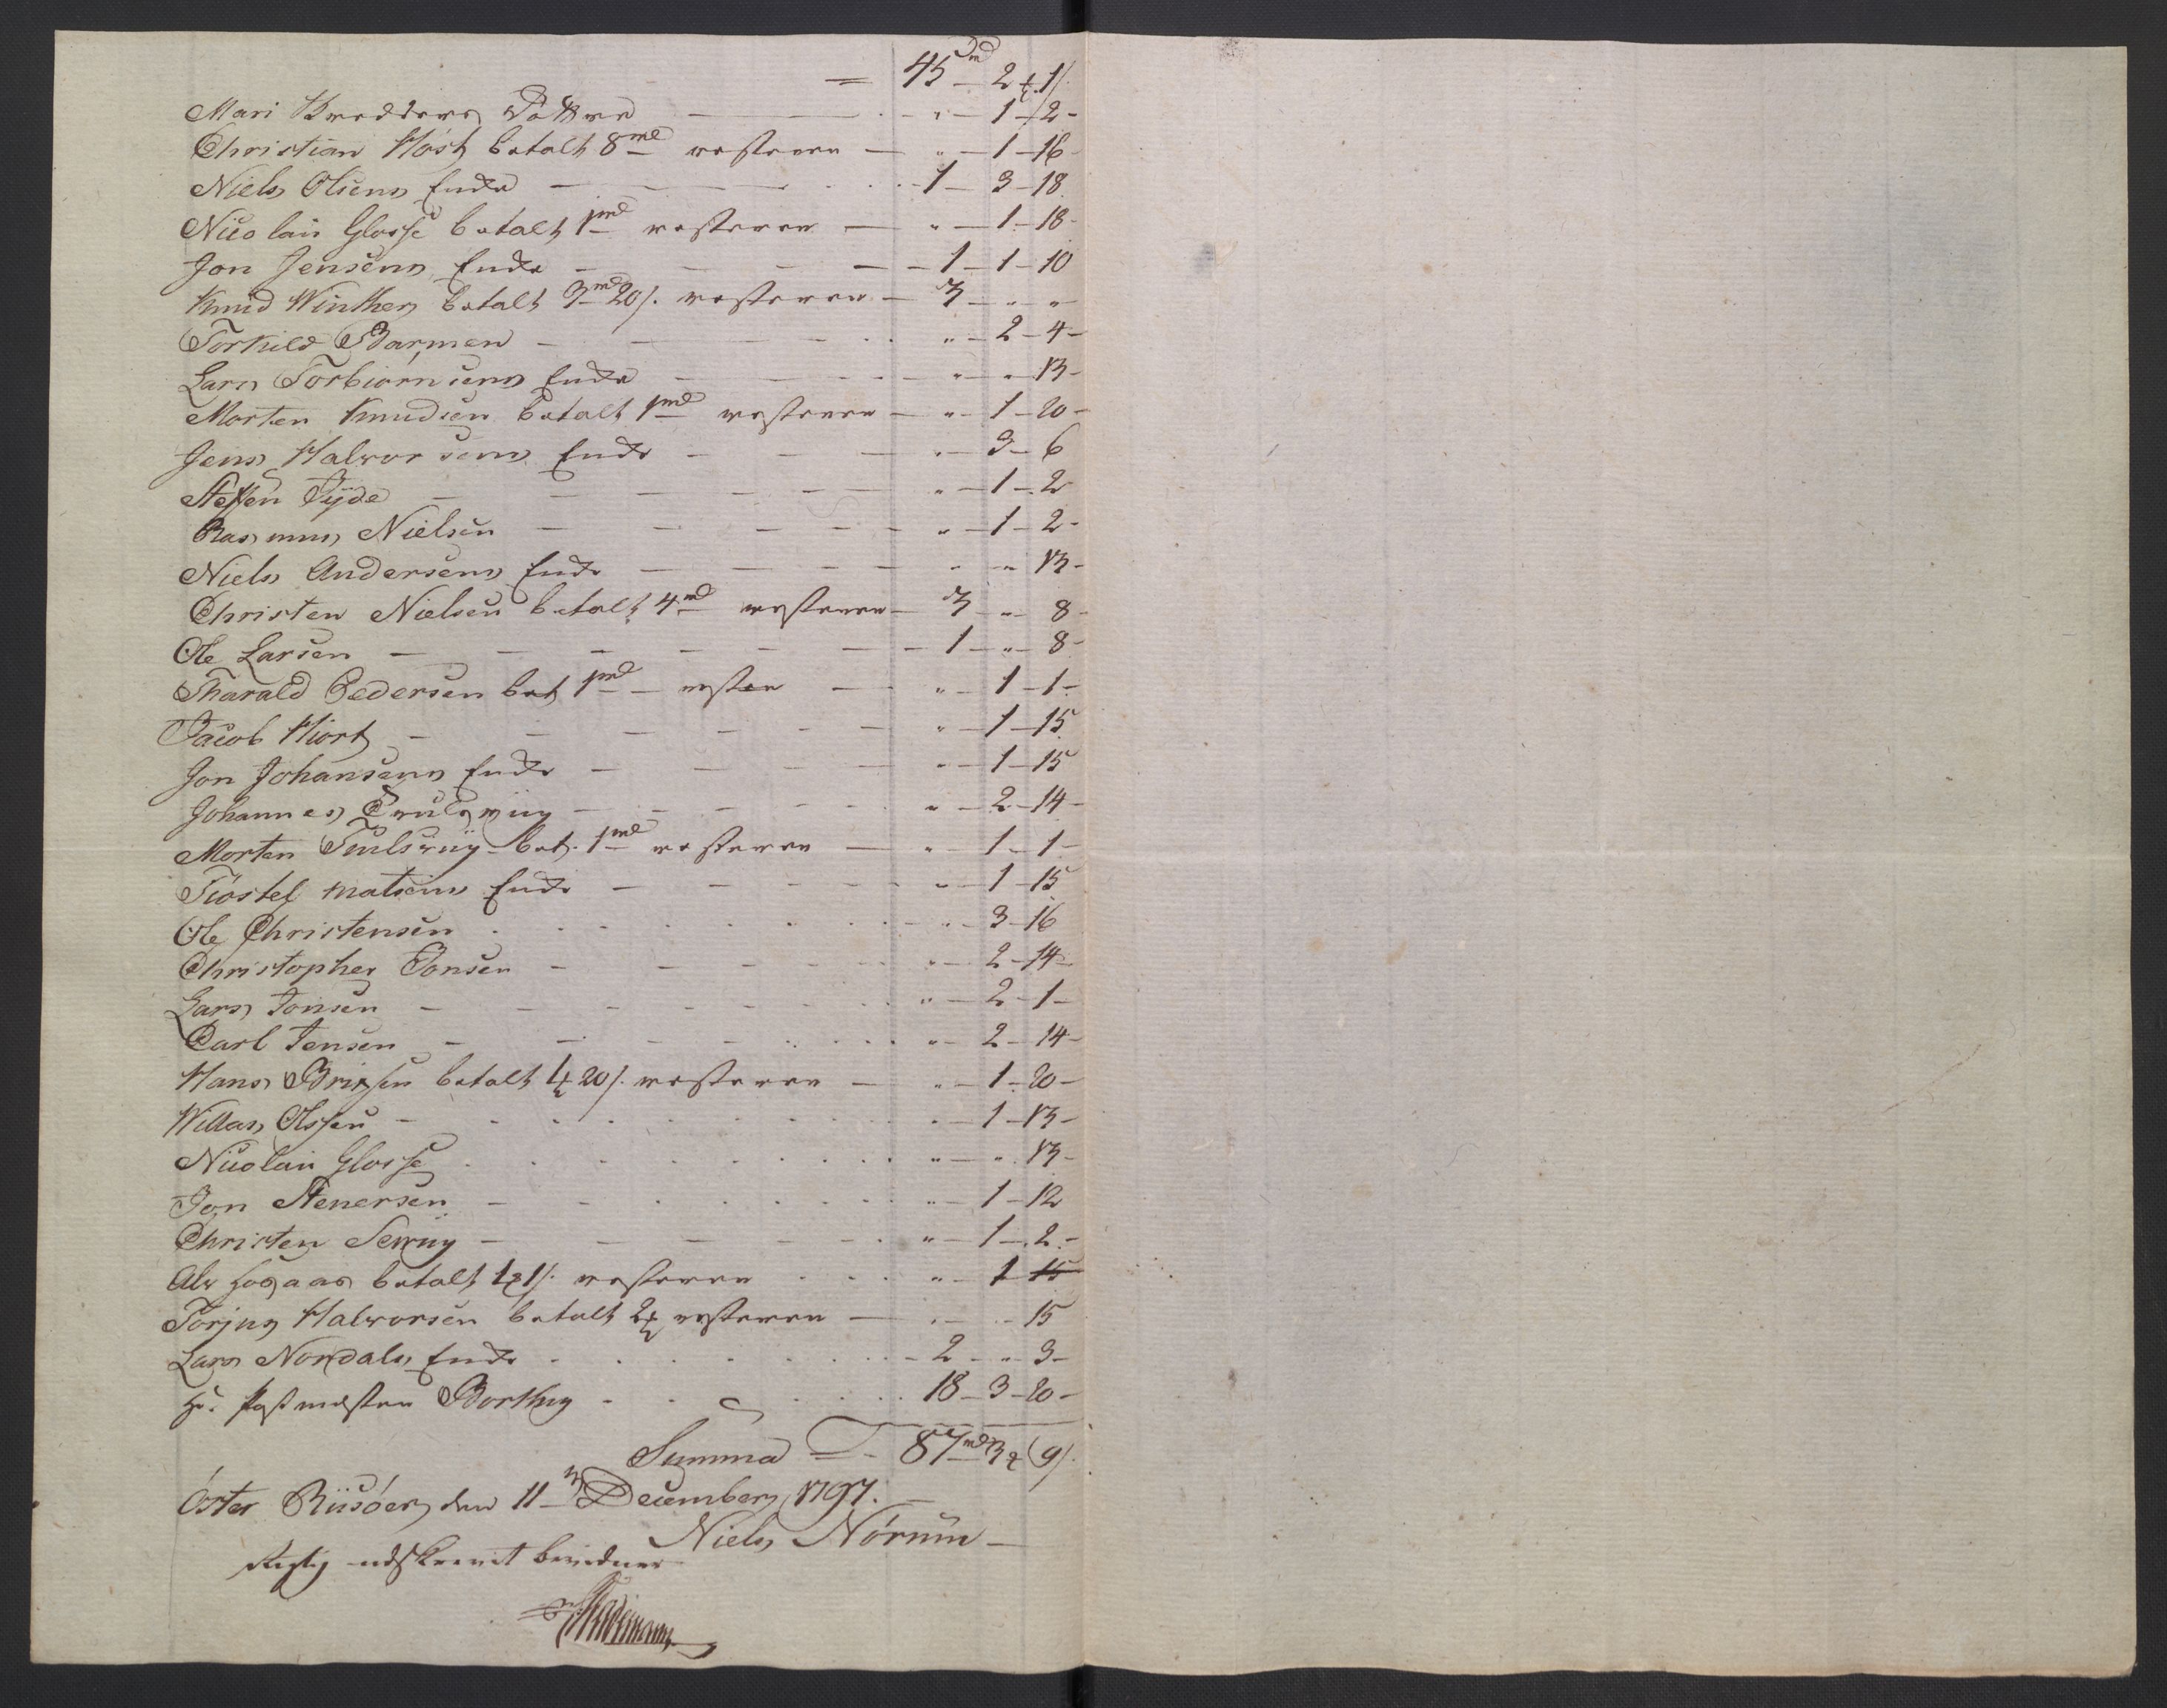 = 45 md 2 ¥ 1 s.
Mari - - 1 - 2 -
Christian Høst betalt 8 md resterer - „ - 1 - 16
Niels Olsens Enke - 1 - 3 - 18
Nicolai Glosse betalt 1 md resterer - „ - 1 - 18 -
Jon Jensens Enke - 1 - 1 - 10
Knud Winther betalt 3 md 20 s. resterer - 3 - „ - „
Torkild Barmen - „ - 2 - 4 -
Lars Torbiørnsens Enke - „ - „ 13 -
Morten Knudsen betalt 1 md resterer - „ - 1 - 20 -
Jens Halvorsens Enke - „ - 3 - 6
Steffen - „ - 1 - 2
Rasmus Nielsen - „ - 1 - 2 -
Niels Andersens Enke - „ - „ 13 -
Christen Nielsen betalt 4 md resterer - 3 - „ 8 -
Ole Larsen - 1 - „ - 8 -
Tharald Pedersen bet 1 md - rester - „ - 1 - 1 -
Jacob Hiort - „ - 1 - 15
Jon Johansens Enke - „ - 1 - 15
Johannes - „ - 2 - 14 -
Morten bet. 1 md resterer - „ 1 - 1 -
Tiostel Matsens Enke - „ - 1 - 15
Ole Christensen - „ - 3 - 16
Christopher Jonsen - „ - 2 - 14 -
Lars Jonsen - „ - 2 - 1 -
Carl Jensen - „ - 2 - 14 -
Hans Brixsen betalt 1 ¥ 20 s. resterer - „ - 1 - 20 -
Willas Olssen - „ - 1 - 13 -
Nicolai Glosse - „ - „ 13 -
Jon Stenersen - „ - 1 - 12
Christen - „ - 1 - 2 -
Alv Hogaas betalt 1 ¥ 1 s. resterer - „ - 1 15
Torjus Halvorsen betalt 2 ¥ resterer - „ - „ 15
Lars Nordals Enke - 2 - „ 3 -
Hr. Postmester Borthig - 18 - 3 - 20 -
Summa - 87 md 3 ¥ 9 s.
Øster Riisøer den 11 December 1797.
Niels Nørum
Rigtig udskrevet bevidner